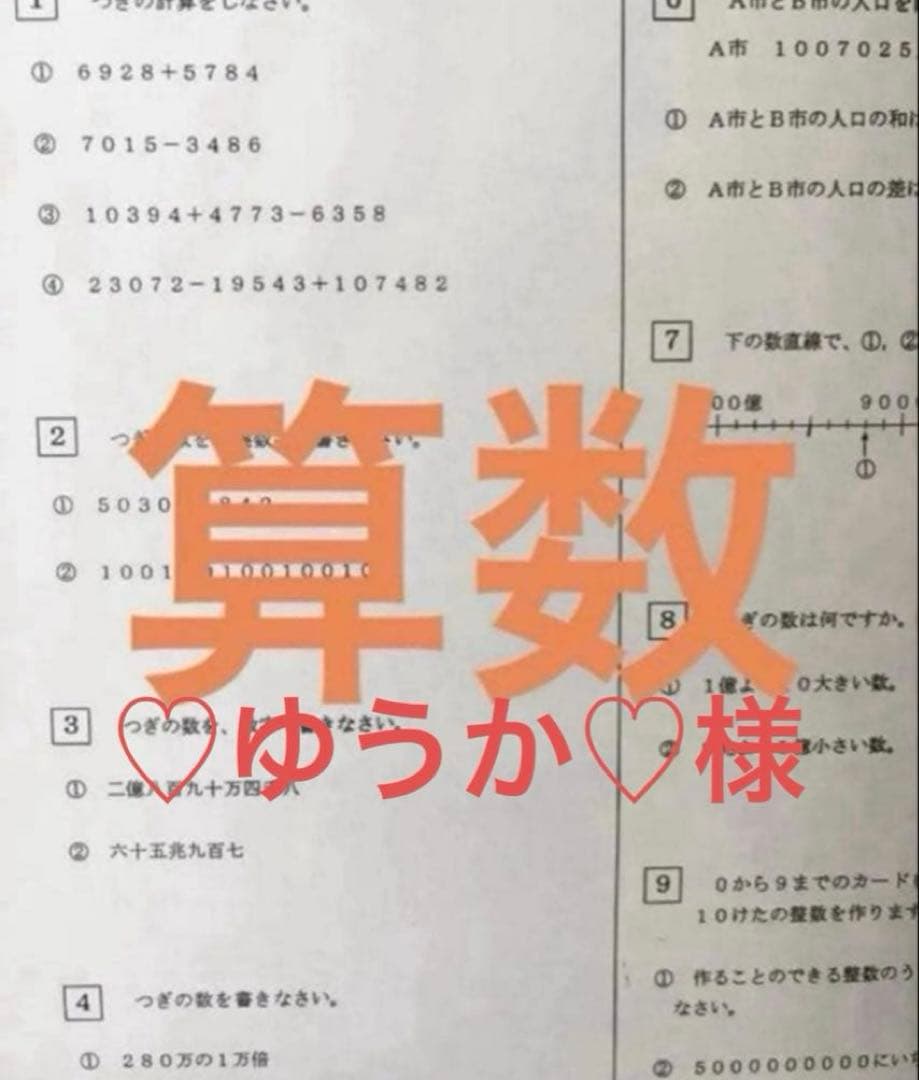 1 つぎの計算をしなさい。
① 6928+5784
② 7015-3486
③ 10394+4773-6358
④ 23072-19543+107482
2
① 5030
② 1001
3 つぎの数を、
①
② 六十五兆九百七
4 つぎの数を書きなさい。
① 280万の1万倍
6 A市とB市の人口を
A市 1007025
① A市とB市の人口の和は
② A市とB市の人口の差は
7 下の数直線で、①、②
00億 900
①
8 ぎの数は何ですか。
① 1億よ 0大きい数。
② 小さい数。
9 0から9までのカードを
10けたの整数を作ります
① 作ることのできる整数のう
なさい。
② 5000000000にいち
算数
♡ゆうか♡様